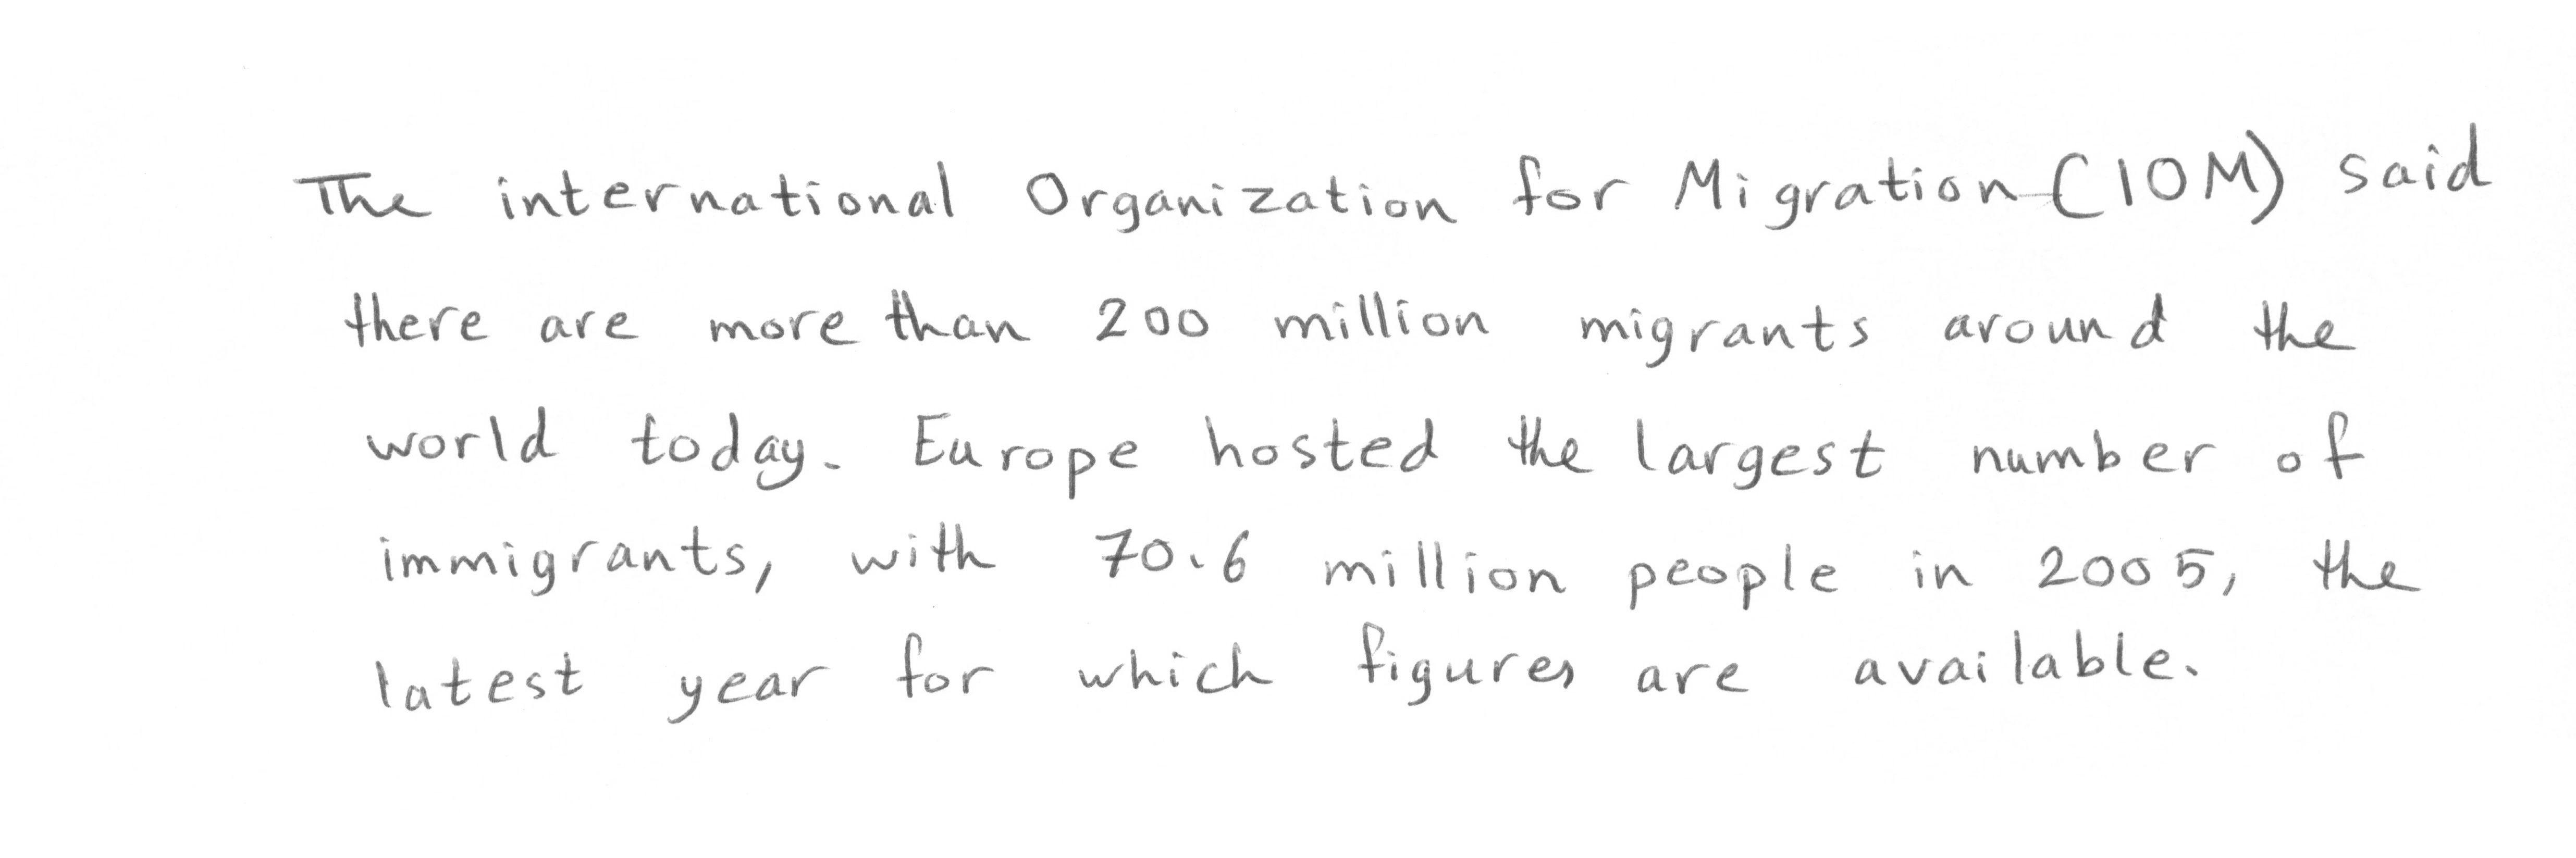 The international Organization for Migration (IOM) said
there are more than 200 million migrants around the
world today. Europe hosted the largest number of
immigrants, with 70.6 million people in 2005, the
latest year for which figures are available.